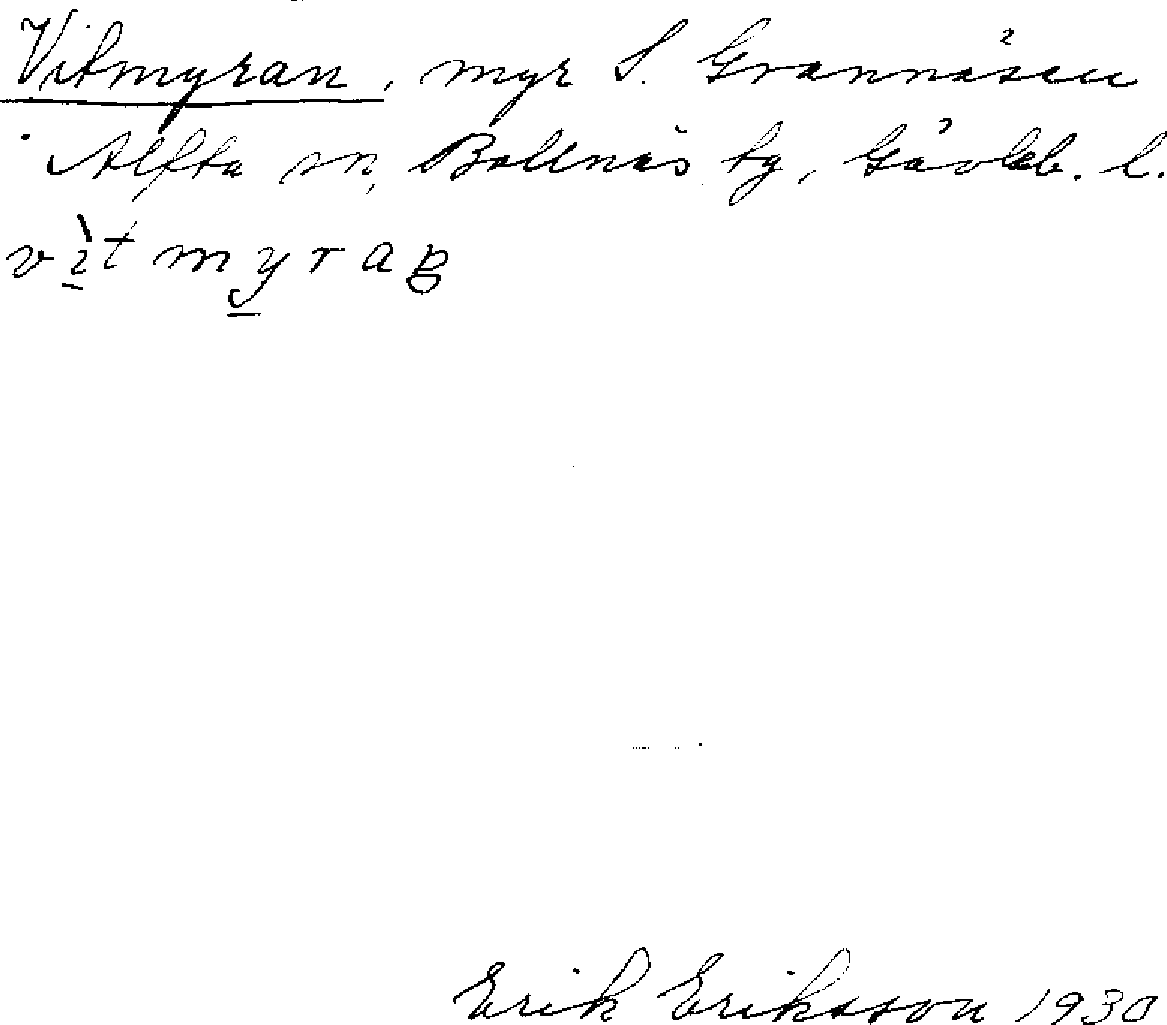 Vitmyran, myr S. Grannåsen
Alfta sn, Bollnäs tg, Gävleb. l.
vìt myraṉ
Erik Eriksson 1930